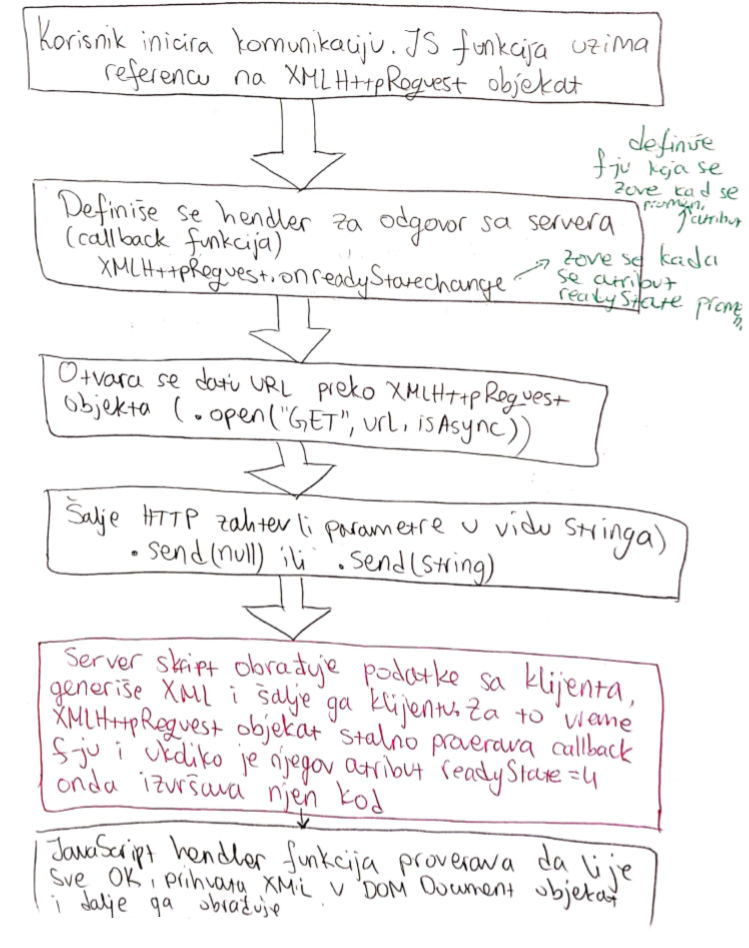 Korisnik inicira komunikaciju. JS funkcija uzima
referencu na XMLHttpRequest objekat
definiše
f-ju koja se
zove kad se
promeni
atribut
Definiše se hendler za odgovor sa servera
(callback funkcija)
XMLHttpRequest.onreadyStatechange
zove se kada
se atribut
readyState prome
Otvara se dati URL preko XMLHttpRequest
objekta (.open("GET", url, isAsync))
Šalje HTTP zahtev (i parametre u vidu stringa)
.send(null) ili .send(string)
Server skript obrađuje podatke sa klijenta,
generiše XML i šalje ga klijentu. Za to vreme
XMLHttpRequest objekat stalno proverava callback
f-ju i ukoliko je njegov atribut readyState=4
onda izvršava njen kod
JavaScript hendler funkcija proverava da li je
sve OK, prihvata XML u DOM Document objekat
i dalje ga obrađuje